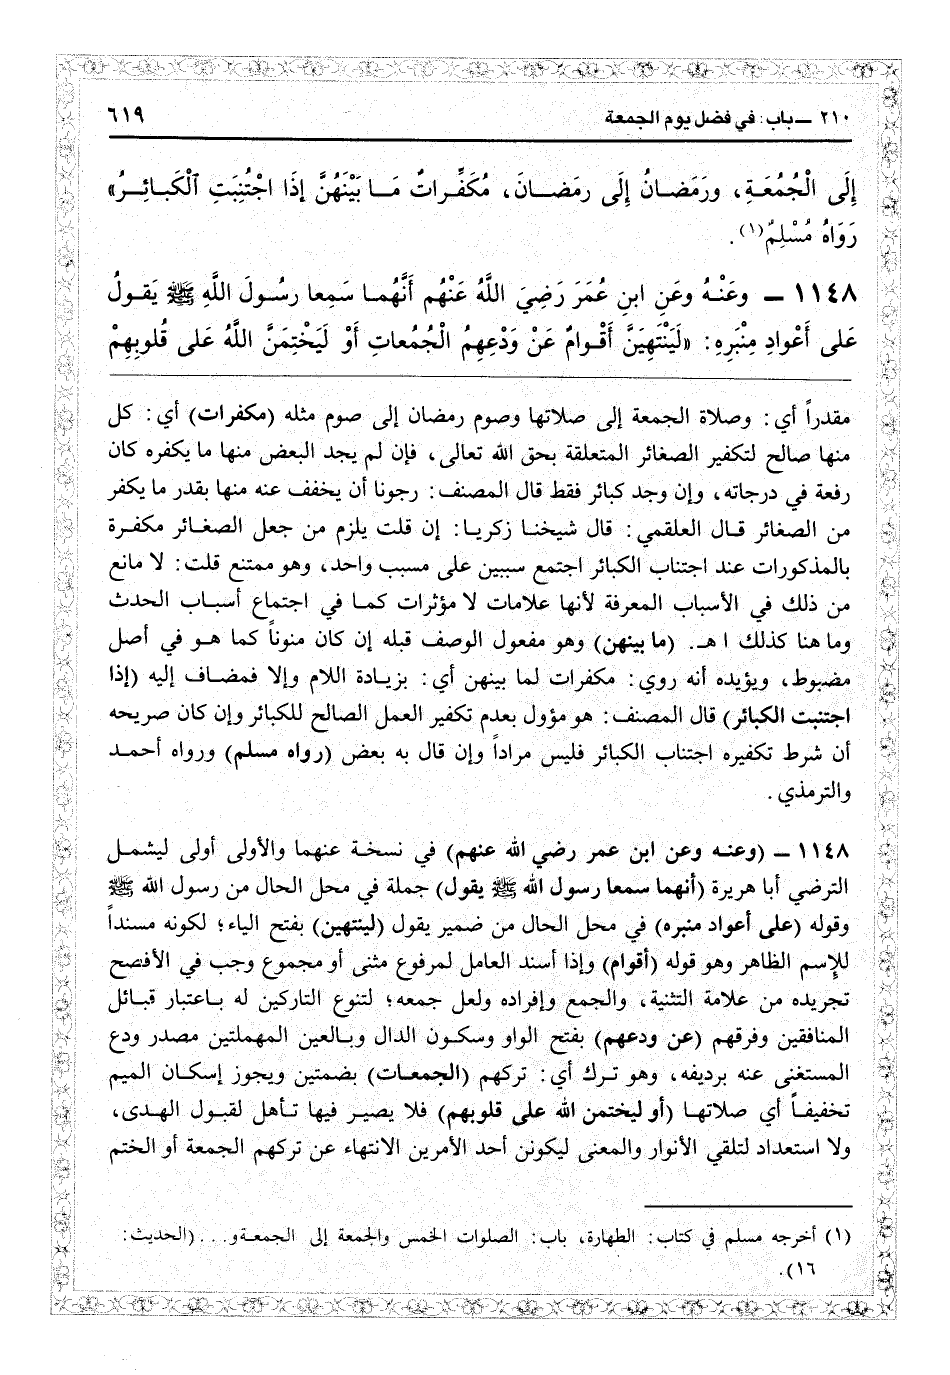 ٢١٠ ــ باب: في فضل يوم الجمعة ٦١٩
إِلَى الْجُمُعَةِ، ورَمَضـانُ إِلَى رمَضـانَ، مُكَفِّـراتٌ مَـا بَيْنَهُنَّ إِذَا اجْتُنِبَتِ ٱلْكَبـائِـرُ»
رَوَاهُ مُسْلِمٌ(١).
١١٤٨ ــ وعَنْـهُ وعَنِ ابنِ عُمَرَ رَضِيَ اللَّهُ عَنْهُم أَنَّهُمـا سَمِعا رسُـولَ اللَّهِ ﷺ يَقولُ
عَلى أَعْوادِ مِنْبَرِهِ: «لَيَنْتَهِيَنَّ أَقْـوامٌ عَنْ وَدْعِهِمُ الْجُمُعاتِ أَوْ لَيَخْتِمَنَّ اللَّهُ عَلى قُلوبِهِمْ
مقدراً أي: وصلاة الجمعة إلى صلاتها وصوم رمضان إلى صوم مثله (مكفرات) أي: كل
منها صالح لتكفير الصغائر المتعلقة بحق الله تعالى، فإن لم يجد البعض منها ما يكفره كان
رفعة في درجاته، وإن وجد كبائر فقط قال المصنف: رجونا أن يخفف عنه منها بقدر ما يكفر
من الصغائر قـال العلقمي: قال شيخنـا زكريـا: إن قلت يلزم من جعل الصغـائر مكفـرة
بالمذكورات عند اجتناب الكبائر اجتمع سببين على مسبب واحد، وهو ممتنع قلت: لا مانع
من ذلك في الأسباب المعرفة لأنها علامات لا مؤثرات كمـا في اجتماع أسبـاب الحدث
وما هنا كذلك ا هـ. (ما بينهن) وهو مفعول الوصف قبله إن كان منوناً كما هـو في أصل
مضبوط، ويؤيده أنه روي: مكفرات لما بينهن أي: بزيـادة اللام وإلا فمضـاف إليه (إذا
اجتنبت الكبائر) قال المصنف: هو مؤول بعدم تكفير العمل الصالح للكبائر وإن كان صريحه
أن شرط تكفيره اجتناب الكبائر فليس مراداً وإن قال به بعض (رواه مسلم) ورواه أحمـد
والترمذي.
١١٤٨ ــ (وعنـه وعن ابن عمر رضي الله عنهم) في نسخـة عنهما والأولى أولى ليشمـل
الترضي أبا هريرة (أنهما سمعا رسول الله ﷺ يقول) جملة في محل الحال من رسول الله ﷺ
وقوله (على أعواد منبره) في محل الحال من ضمير يقول (لينتهين) بفتح الياء؛ لكونه مسنداً
للإسم الظاهر وهو قوله (أقوام) وإذا أسند العامل لمرفوع مثنى أو مجموع وجب في الأفصح
تجريده من علامة التثنية، والجمع وإفراده ولعل جمعه؛ لتنوع التاركين له بـاعتبار قبـائل
المنافقين وفرقهم (عن ودعهم) بفتح الواو وسكـون الدال وبـالعين المهملتين مصدر ودع
المستغنى عنه برديفه، وهو تـرك أي: تركهم (الجمعـات) بضمتين ويجوز إسكـان الميم
تخفيفـاً أي صلاتهـا (أو ليختمن الله على قلوبهم) فلا يصيـر فيها تـأهل لقبـول الهـدى،
ولا استعداد لتلقي الأنوار والمعنى ليكونن أحد الأمرين الانتهاء عن تركهم الجمعة أو الختم
(١) أخرجه مسلم في كتاب: الطهارة، باب: الصلوات الخمس والجمعة إلى الجمعـة و... (الحديث:
١٦).